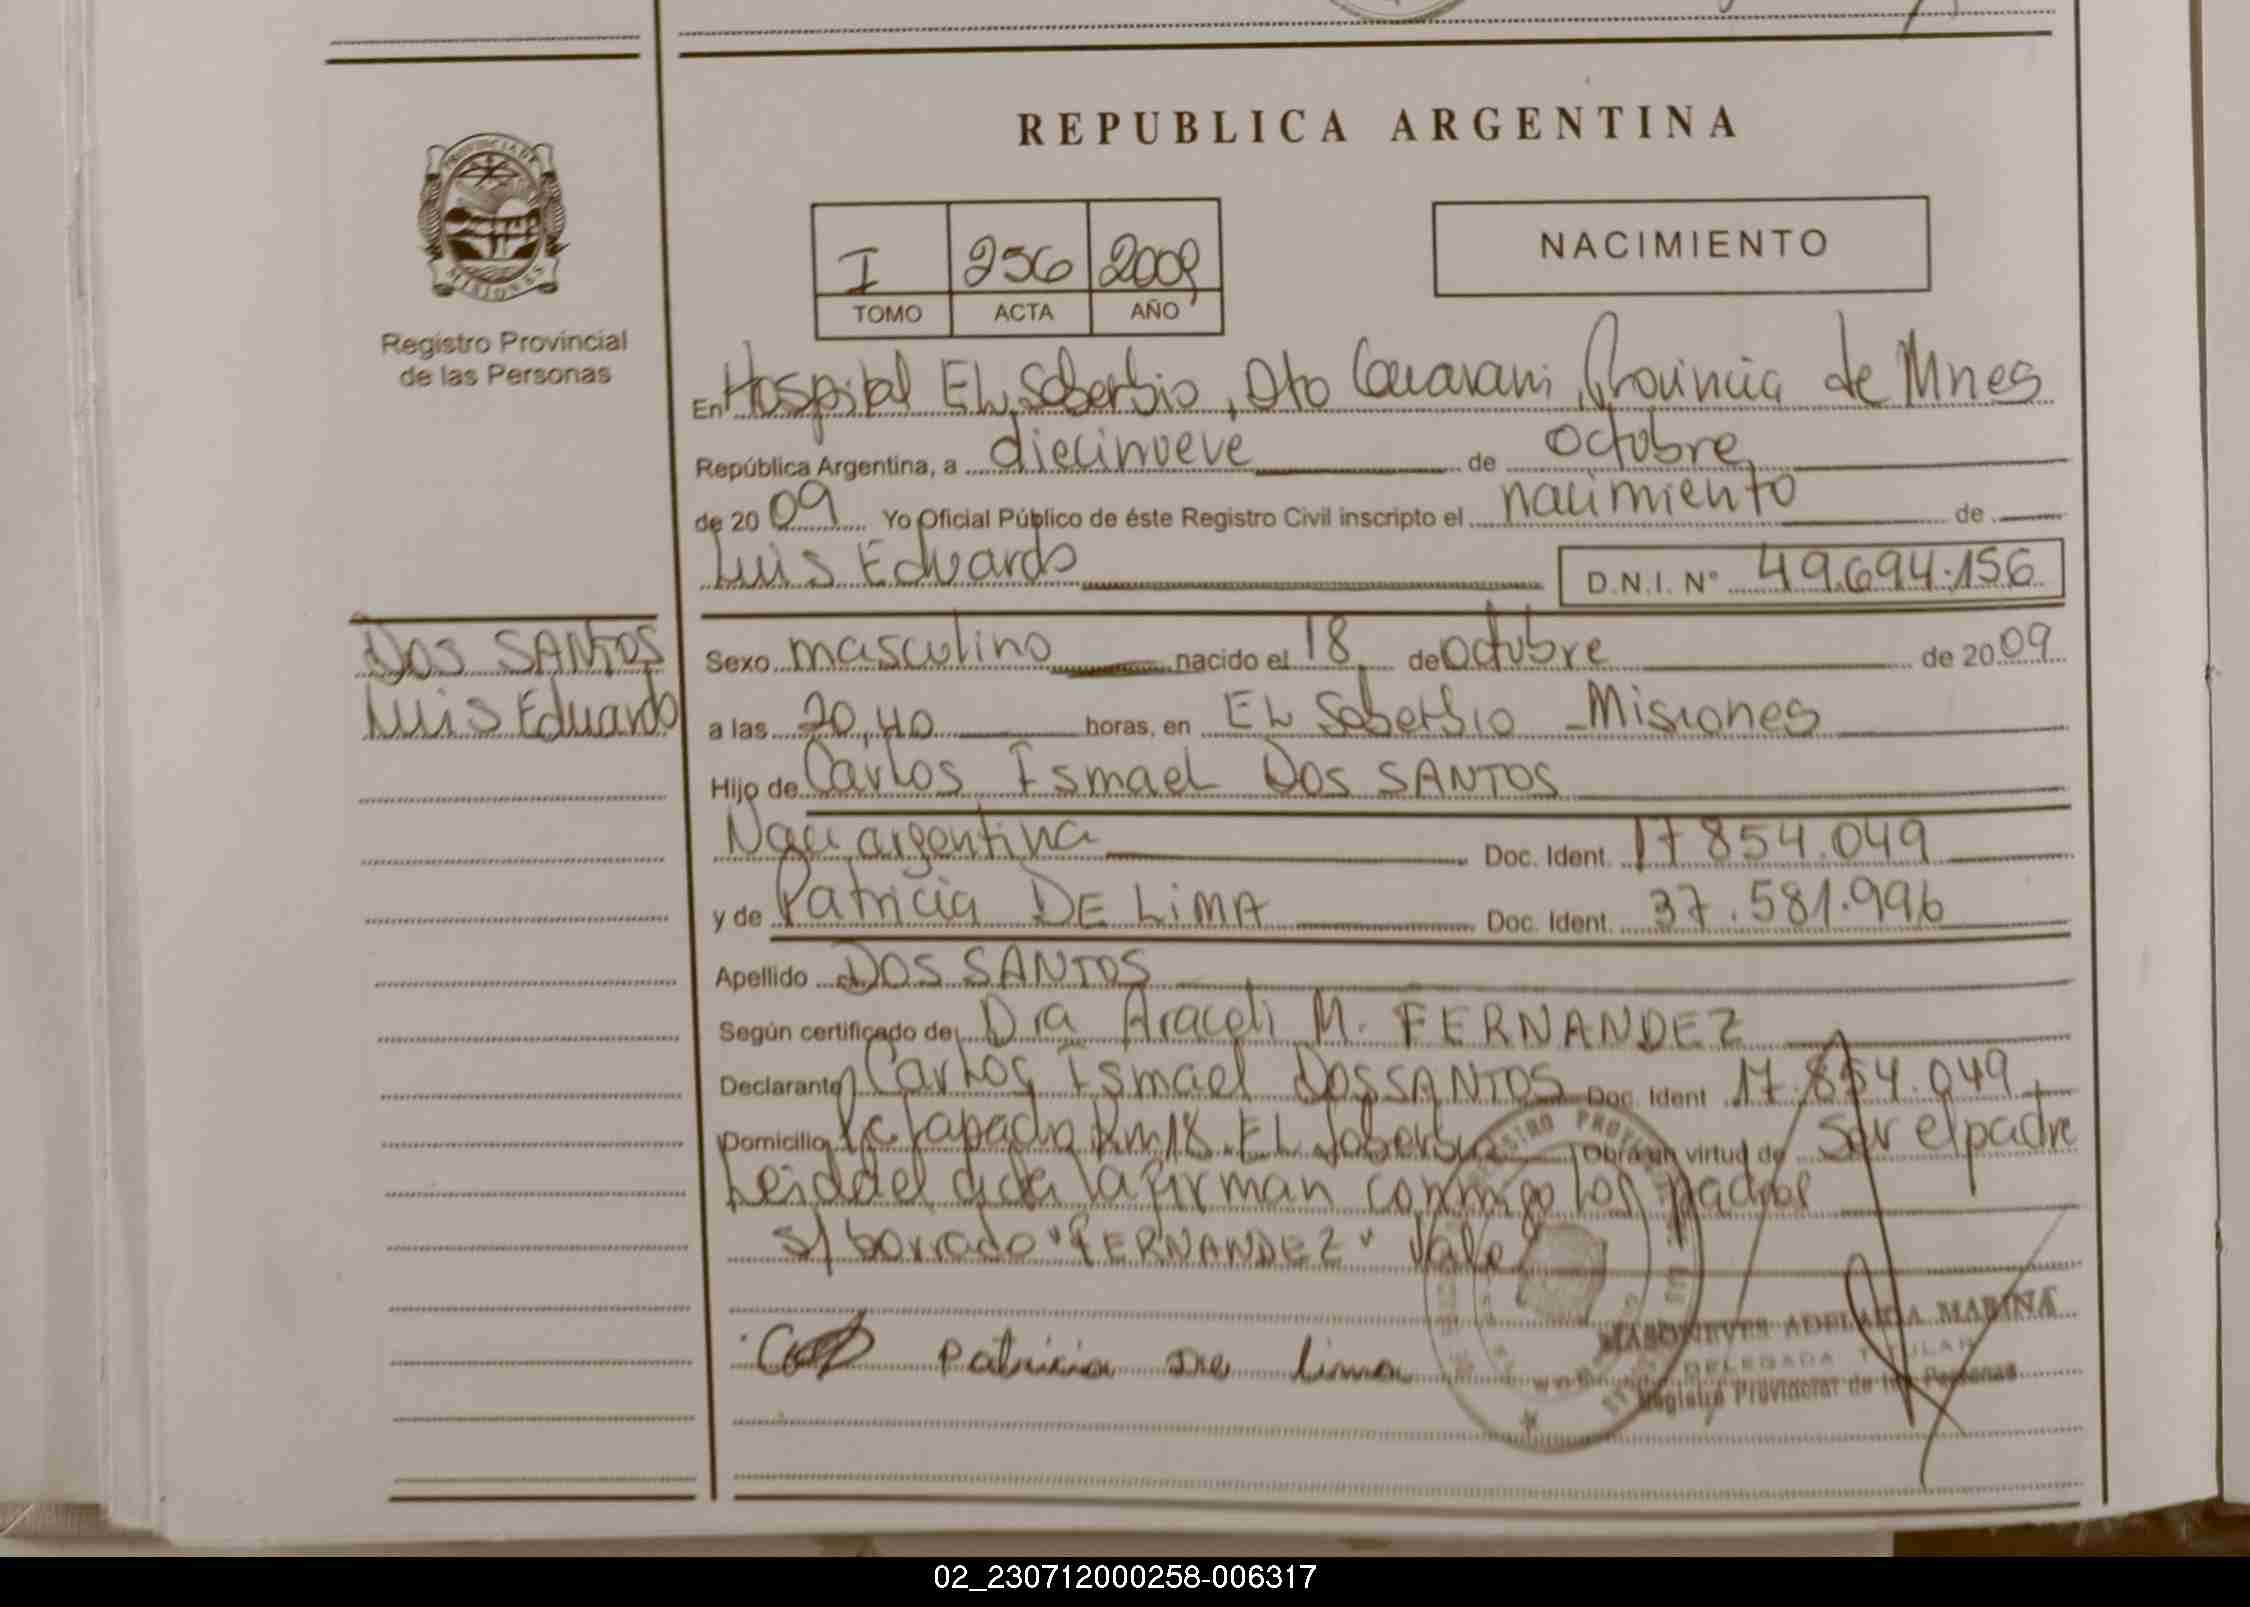 REPUBLICA ARGENTINA
PROVINCIA DE
MISIONES
Registro Provincial
de las Personas
I 256 2009
TOMO ACTA AÑO
NACIMIENTO
En Hospital EL Soberbio, Dto Guarani, Provincia de Mnes
República Argentina, a diecinueve de octubre
de 2009 Yo Oficial Público de éste Registro Civil inscripto el nacimiento de
Luis Eduardo D.N.I. Nº 49.694.156
DOS SANTOS
Luis Eduardo
Sexo masculino nacido el 18 de octubre de 2009
a las 20,40 horas, en EL Soberbio - Misiones
Hijo de Carlos Ismael DOS SANTOS
Nac. argentina Doc. Ident. 17.854.049
y de Patricia DE LiMA Doc. Ident. 37.581.996
Apellido DOS SANTOS
Según certificado de Dra Araceli M. FERNANDEZ
Declarante Carlos Ismael DOS SANTOS Doc. Ident 17.854.049
Domicilio Pic Tapado Km 18. EL Soberbio Obra en virtud de ser el padre
Leida el acta la firman conmigo los padres
s/ borrado "FERNANDEZ" Vale
Patricia De lima
MASONEVES ADELAIDA MARINA
DELEGADA TITULAR
Registro Provincial de las Personas
02_230712000258-006317